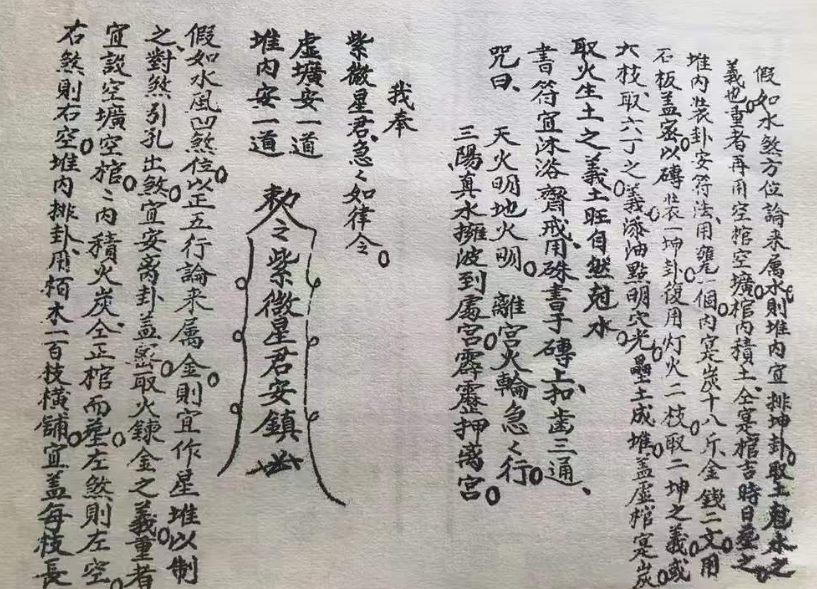 假如水煞方位論来属水則堆内宜排坤卦取土尅水之
義也重者再用空棺空壙棺内積土仝寔棺吉時日塟之
堆内装卦安符法用甕一個内寔炭十八斤金錢二文用
石板盖密以磚装一坤卦復用灯火二枝取二坤之義或
六枝取六丁之義添油點明穴光壘土成堆盖虚棺寔炭
取火生土之義土旺自然尅水
書符宜沐浴齋戒用硃書于磚上扣齿三通
咒曰
天火明地火明 離宮火輪急〻行
三陽真水擁波到處宮霹靂押离宮
我奉
紫微星君急〻如律令
虚壙安一道
堆内安一道
敕之紫微星君安鎮
假如水風凹煞位以正五行論来属金則宜作星堆以制
之對煞引孔出煞宜安离卦盖密取火鍊金之義重者
宜設空壙空棺〻内積火炭仝正棺而塟左煞則左空
右煞則右空堆内排卦用栢木一百枝横舖宜盖每枝長